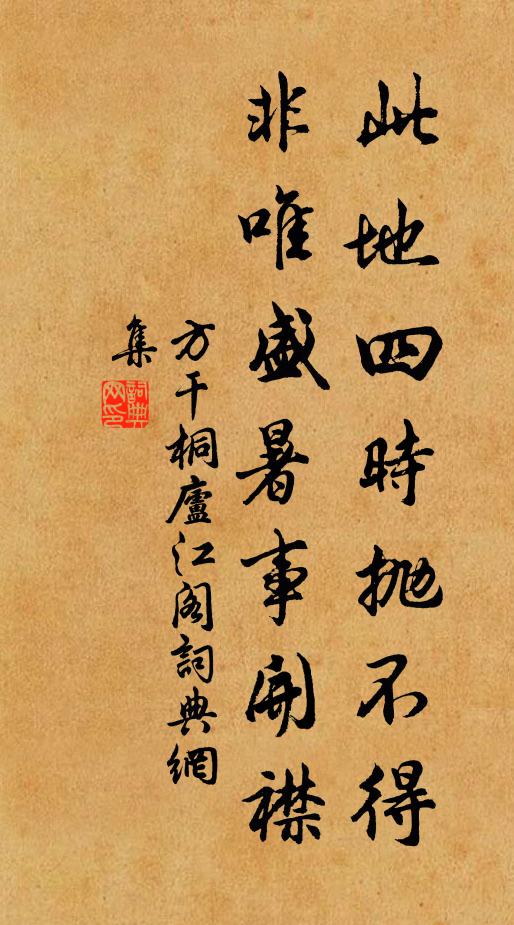 此地四時抛不得
非唯盛暑事開襟
方干桐廬江阁詞典網
集
詞典網印